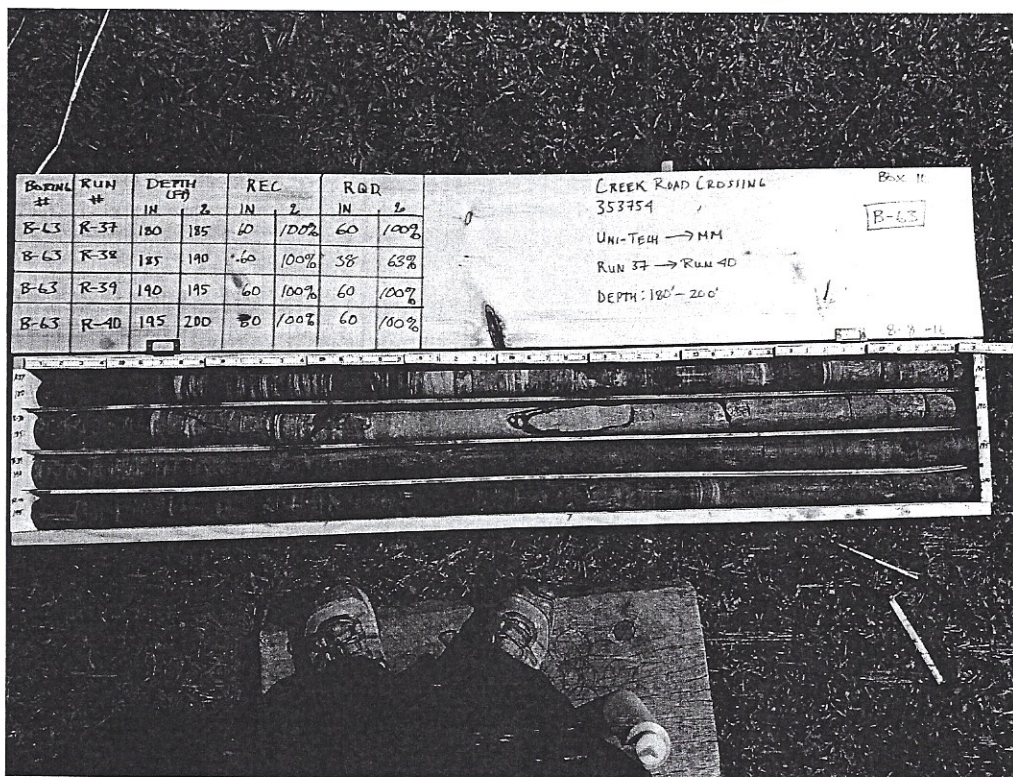 BORING # RUN # DEPTH (FT) REC RQD
IN % IN %
B-63 R-37 180 185 60 100% 60 100%
B-63 R-38 185 190 60 100% 38 63%
B-63 R-39 190 195 60 100% 60 100%
B-63 R-40 195 200 60 100% 60 100%
CREEK ROAD CROSSING
353754
UNI-TECH → MM
RUN 37 → RUN 40
DEPTH: 180' - 200'
BOX
B-63